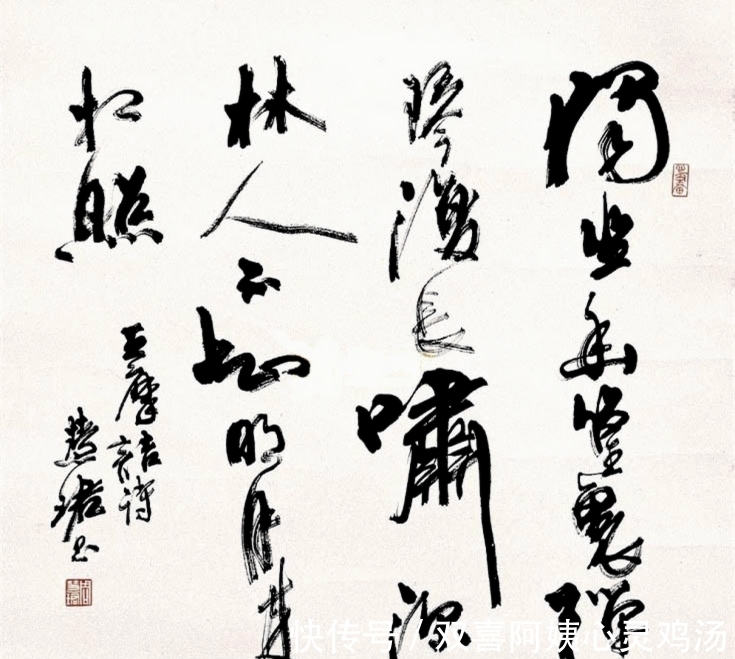 獨坐幽篁裏彈
琴復長嘯深
林人不知明月來
相照
王摩詰诗
慧珺书
快传号 / 双喜阿姨心灵鸡汤